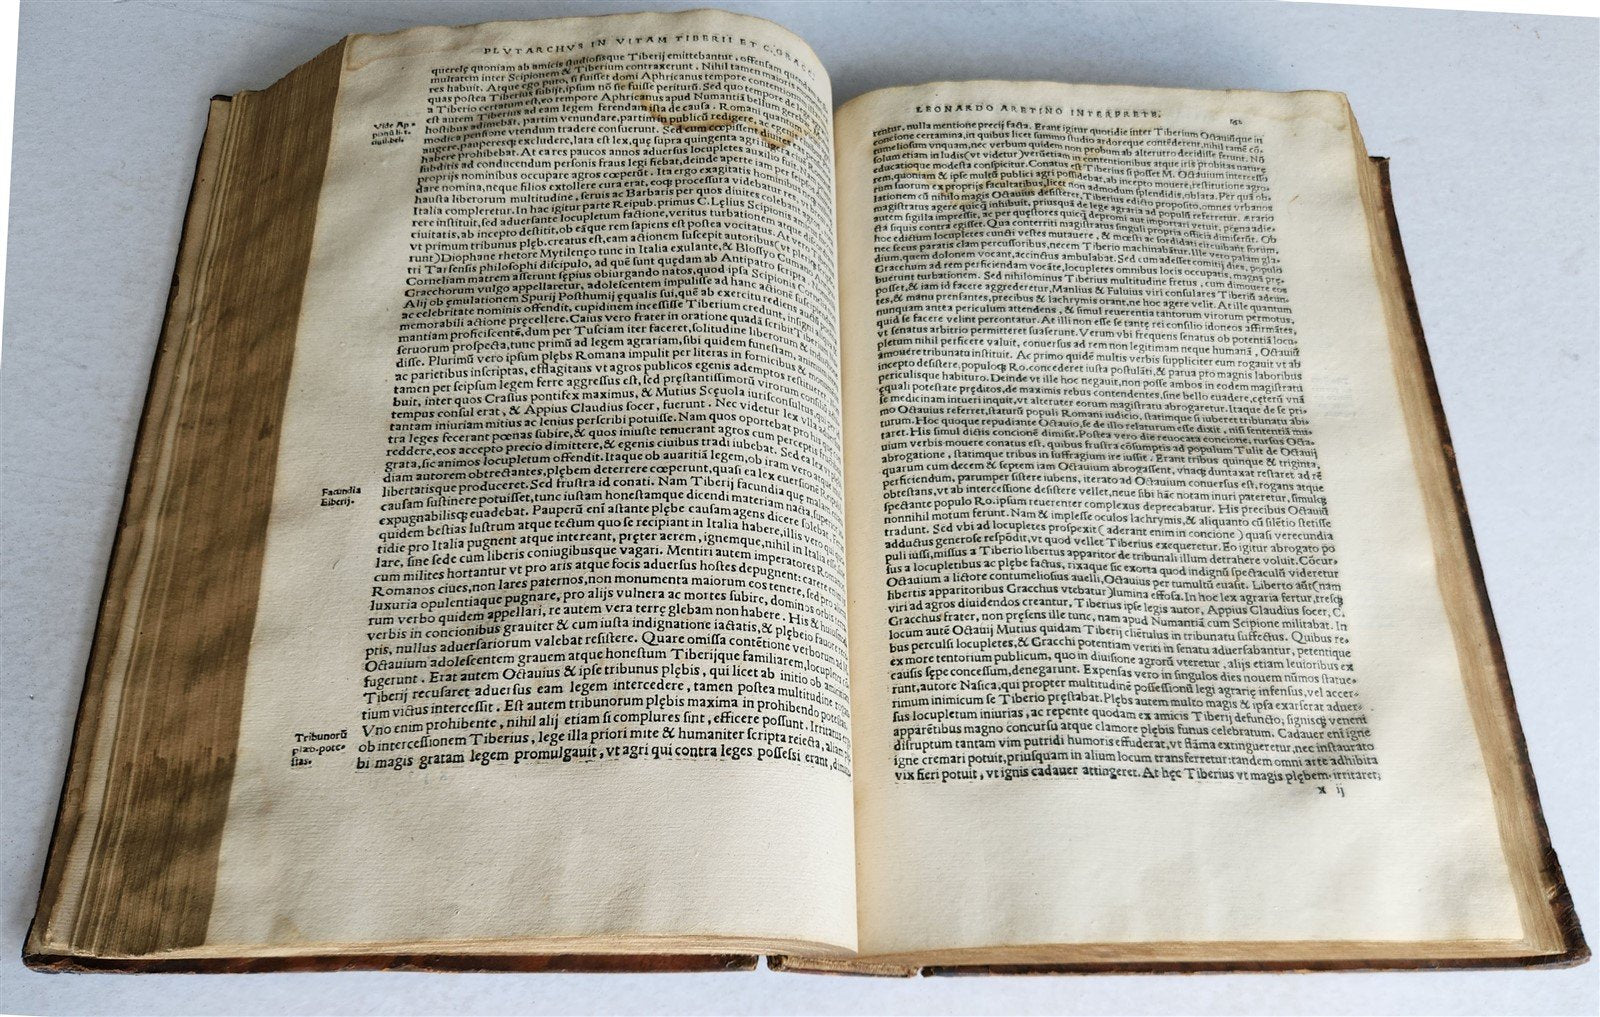 PLVTARCHVS IN VITAM TIBERII ET C. GRACC.
querelę quoniam ab amicis studiosisque Tiberij emittebantur, offensam
multatem inter Scipionem & Tiberium contraxerunt. Nihil tamen maioris
res habuit. Atque ego puto, si fuisset domi Aphricanus tempore contentionum
quas postea Tiberius subijt, ipsum nõ sic fuisse periturũ. Sed quo tempore de lege
a Tiberio certatum est, eo tempore Aphricanus apud Numantiã bellum gerebat.
est autem Tiberius ad eam legem ferendam ista de causa. Romani quantum
Vide Ap-
pianũ li. 1.
ciuil. bel.
hostibus adimebãt, partim venundare, partim in publicũ redigere, ac egenis
modica pensione vtendum tradere consueuerunt. Sed cum cœpissent diuites
augere, pauperesq; excludere, lata est lex, que supra quingenta agri iugera
habere prohibebat. At ea res paucos annos aduersus locupletes auxilio fuit. Nam
subditis ad conducendum personis fraus legi fiebat, deinde aperte iam per se
proprijs nominibus occupare agros cœperũt. Ita ergo exagitatis hominibus
dare nomina, neque filios extollere cura erat, eoq; processura videbatur res, vt
hausta liberorum multitudine, seruis ac Barbaris per quos diuites colebant agros
Italia compleretur. In hac igitur parte Reipub. primus C. Lęlius Scipionis
rere instituit, sed aduersante locupletum factione, veritus turbationem atque
ciuitatis, ab incepto destitit, ob eãque rem sapiens est postea vocitatus. At vero
vt primum tribunus plęb. creatus est, eam actionem suscepit autoribus (vt plerique
runt) Diophane rhetore Mytilenęo tunc in Italia exulante, & Blossyo Cumano,
tri Tarsensis philosophi discipulo, ad quẽ sunt quędam ab Antipatro scripta.
Corneliam matrem asserunt sępius obiurgando natos, quod ipsa Scipionis
Gracchorum vulgo appellaretur, adolescentem impulisse ad hanc actionẽ
Alij ob ęmulationem Spurij Posthumij ęqualis sui, quẽ ab exercitu rediens
ac celebritate nominis offendit, cupidinem incessisse Tiberium credunt, insigni
memorabili actione pręcellere. Caius vero frater in oratione quadã scribit
mantiam proficiscentẽ, dum per Tusciam iter faceret, solitudine liberorum &
seruorum prospecta, tunc primũ ad legem agrariam, sibi quidem funestam,
disse. Plurimũ vero ipsum plębs Romana impulit per literas in fornicibus &
ac parietibus inscriptas, efflagitans vt agros publicos egenis ademptos restitueret
tamen per seipsum legem ferre aggressus est, sed pręstantissimorũ virorum
buit, inter quos Crassus pontifex maximus, & Mutius Scęuola iurisconsultus, qui
tempus consul erat, & Appius Claudius socer, fuerunt. Nec videtur lex vlla
tantam iniuriam mitius ac lenius perscribi potuisse. Nam quos oportebat pro
tra leges fecerant pœnas subire, & quos iniuste tenuerant agros cum perceptis
reddere, eos accepto precio dimittere, & egenis ciuibus tradi iubebat. Sed ea lex
grata, sic animos locupletum offendit. Itaque ob auaritiã legem, ob iram vero
diam autorem obtrectantes, plębem deterrere cœperunt, quasi ea lex euersionẽ
libertatisque produceret. Sed frustra id conati. Nam Tiberij facundia quę malam
Facundia
Tiberij.
causam sustinere potuisset, tunc iustam honestamque dicendi materiam nacta,
expugnabilisq; euadebat. Pauperũ enĩ astante plębe causam agens dicere solebat,
quidem bestias lustrum atque tectum quo se recipiant in Italia habere, illis vero
tidie pro Italia pugnent atque intereant, pręter aerem, ignemque, nihil in Italia
lare, sine sede cum liberis coniugibusque vagari. Mentiri autem imperatores
cum milites hortantur vt pro aris atque focis aduersus hostes depugnent: carere enim
Romanos ciues, non lares paternos, non monumenta maiorum eos tenere, sed pro
luxuria opulentiaque pugnare, pro alijs vulnera ac mortes subire, dominos orbis
rum verbo quidem appellari, re autem vera terrę glebam non habere. His &
verbis in concionibus grauiter & cum iusta indignatione iactatis, & plębeio fauore
ptis, nullus aduersariorum valebat resistere. Quare omissa contẽtione verborum ad
Octauium adolescentem grauem atque honestum Tiberijque familiarem, locupletes
fugerunt. Erat autem Octauius & ipse tribunus plębis, qui licet ab initio ob amicitiam
Tiberij recusaret aduersus eam legem intercedere, tamen postea multitudine rogan-
tium victus intercessit. Est autem tribunorum plębis maxima in prohibendo potestas.
Tribunorũ
plæb. pote-
stas.
Vno enim prohibente, nihil alij etiam si complures sint, efficere possunt. Irritatus
ob intercessionem Tiberius, lege illa priori mite & humaniter scripta reiecta, aliam
bi magis gratam legem promulgauit, vt agri qui contra leges possessi erant,
LEONARDO ARETINO INTERPRETE.
rentur, nulla mentione precij facta. Erant igitur quotidie inter Tiberium Octauiũque in
concione certamina, in quibus licet summo studio ardoreque contẽderent, nihil tamẽ cõ-
tumeliosum vnquam, nec verbum quidem non probum ab alterutro decidisse ferunt. Nõ
solum etiam in ludis (vt videtur) verũetiam in contentionibus atque iris probitas naturę
educatioque modesta conspicitur. Conatus est Tiberius si posset M. Octauium intercessio
rem, quoniam & ipse multũ publici agri possidebat, ab incepto mouere, restitutione agro-
rum suorum ex proprijs facultatibus, licet non admodum splendidis, oblata. Per quã ob-
lationem cũ nihilo magis Octauius desisteret, Tiberius edicto proposito, omnes vrbanos
magistratus agere quicq̃ inhibuit, priusquã de lege agraria ad populũ referretur. Ærario
autem sigilla impressit, ac per quęstores quicq̃ depromi aut importari vetuit, pœna adie-
cta siquis contra egisset. Qua conterriti magistratus singuli propria officia dimiserũt. Ob
hoc edictum locupletes cuncti vestes mutauere, & mœsti ac sordidati circuibant forum,
nec secus paratis clam percussoribus, necem Tiberio machinabãtur. Ille vero palam gla-
dium, quem dolonem vocant, accinctus ambulabat. Sed cum adesset comitij dies, populo
Gracchum ad rem perficiendam vocãte, locupletes omnibus locis occupatis, magnã prę-
buerunt turbationem. Sed nihilominus Tiberius multitudine fretus, cum dimouere eos
posset, & iam id facere aggrederetur, Manlius & Fuluius viri consulares Tiberiũ adeun-
tes, & manu prensantes, precibus & lachrymis orant, ne hoc agere velit. At ille quantum
nunquam antea periculum attendens, & simul reuerentia tantorum virorum permotus,
quid se facere velint percontatur. At illi non esse se tantę rei consilio idoneos affirmãtes,
vt senatus arbitrio permitteret suaserunt. Verum vbi frequens senatus ob potentiã locu-
pletum nihil perficere valuit, conuersus ad rem non legitimam neque humanã, Octauiũ
amouere tribunatu instituit. Ac primo quidẽ multis verbis suppliciter eum rogauit vt ab
incepto desistere, populoq; Ro. concederet iusta postulãti, & parua pro magnis laboribus
periculisque habituro. Deinde vt ille hoc negauit, non posse ambos in eodem magistratu
ęquali potestate pręditos, de maximis rebus contendentes, sine bello euadere, cęterũ vnã
se medicinam intueri inquit, vt alteruter eorum magistratu abrogaretur. Itaque de se pri-
mo Octauius referret, staturũ populi Romani iudicio, statimque si iuberet tribunatu abi-
turum. Hoc quoque repudiante Octauio, se de illo relaturum esse dixit, nisi sententiã mu-
taret. His simul dictis concionẽ dimisit. Postea vero die reuocata concione, rursus Octa-
uium verbis mouere conatus est, quibus frustra cõsumptis ad populum Tulit de Octauij
abrogatione, statimque tribus in suffragium ire iussit. Erant tribus quinque & triginta,
quarum cum decem & septem iam Octauium abrogassent, vnaq; duntaxat restaret ad rẽ
perficiendum, parumper sistere iubens, iterato ad Octauium conuersus est, rogans atque
obtestans, vt ab intercessione desistere vellet, neue sibi hãc notam inuri pateretur, simulq;
spectante populo Ro. ipsum reuerenter complexus deprecabatur. His precibus Octauiũ
nonnihil motum ferunt. Nam & implesse oculos lachrymis, & aliquanto cũ silẽtio stetisse
tradunt. Sed vbi ad locupletes prospexit (aderant enim in concione) quasi verecundia
adductus generose respõdit, vt quod vellet Tiberius exequeretur. Eo igitur abrogato po
puli iussi, missus a Tiberio libertus apparitor de tribunali illum detrahere voluit. Cõcur-
sus a locupletibus ac plębe factus, rixaque sic exorta quod indignũ spectaculũ videretur
Octauium a lictore contumeliosius auelli, Octauius per tumultũ euasit. Liberto aũt (nam
libertis apparitoribus Gracchus vtebatur) lumina effossa. In hoc lex agraria fertur, tresq;
viri ad agros diuidendos creantur, Tiberius ipse legis autor, Appius Claudius socer, C.
Gracchus frater, non pręsens ille tunc, nam apud Numantiã cum Scipione militabat. In
locum autẽ Octauij Mutius quidam Tiberij cliẽtulus in tribunatu suffectus. Quibus re-
bus perculsi locupletes, & Gracchi potentiam veriti in senatu aduersabantur, petentique
ex more tentorium publicum, quo in diuisione agrorũ vteretur, alijs etiam leuioribus ex
causis sępe concessum, denegarunt. Expensas vero in singulos dies nouem nũmos statue-
runt, autore Nasica, qui propter multitudinẽ possessionũ legi agrarię infensus, vel acer-
rimum inimicum se Tiberio pręstabat. Plębs autem multo magis & ipsa exarserat aduer-
sus locupletum iniurias, ac repente quodam ex amicis Tiberij defuncto, signisq; veneni
apparẽtibus magno concursu atque clamore plębis funus celebratum. Cadauer enĩ igne
disruptum tantam vim putridi humoris effuderat, vt flãma extingueretur, nec instaurato
igne cremari potuit, priusquam in alium locum transferretur: tandem omni arte adhibita
vix fieri potuit, vt ignis cadauer attingeret. At hęc Tiberius vt magis plębem irritaret,
x ij